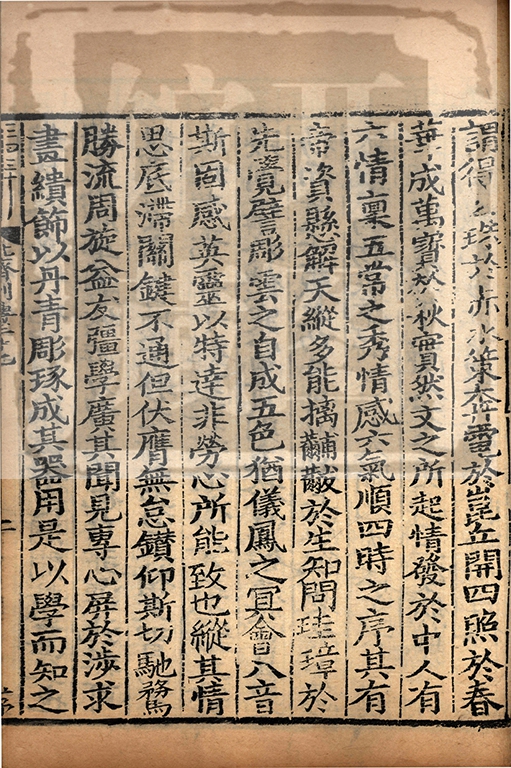 謂得玄珠於赤水策奔電於崑丘開四照於春
華成萬寶於秋實然文之所起情發於中人有
六情稟五常之秀情感六氣順四時之序其有
帝資縣解天縱多能摛黼黻於生知問珪璋於
先覺譬彫雲之自成五色猶儀鳳之冥會八音
斯固感英靈以特達非勞心所能致也縱其情
思底滯關鍵不通但伏膺無怠鑚仰斯切馳騖
勝流周旋益友彊學廣其聞見專心屏於涉求
畫繢飾以丹青彫琢成其器用是以學而知之
二